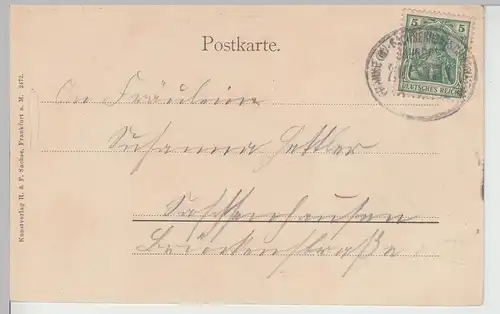 Postkarte.
5 5
DEUTSCHES REICH
An Fräulein
Susanna
Sachsenhausen
Brückenstraße
Kunstverlag H. & P. Sachse, Frankfurt a. M. 2472.